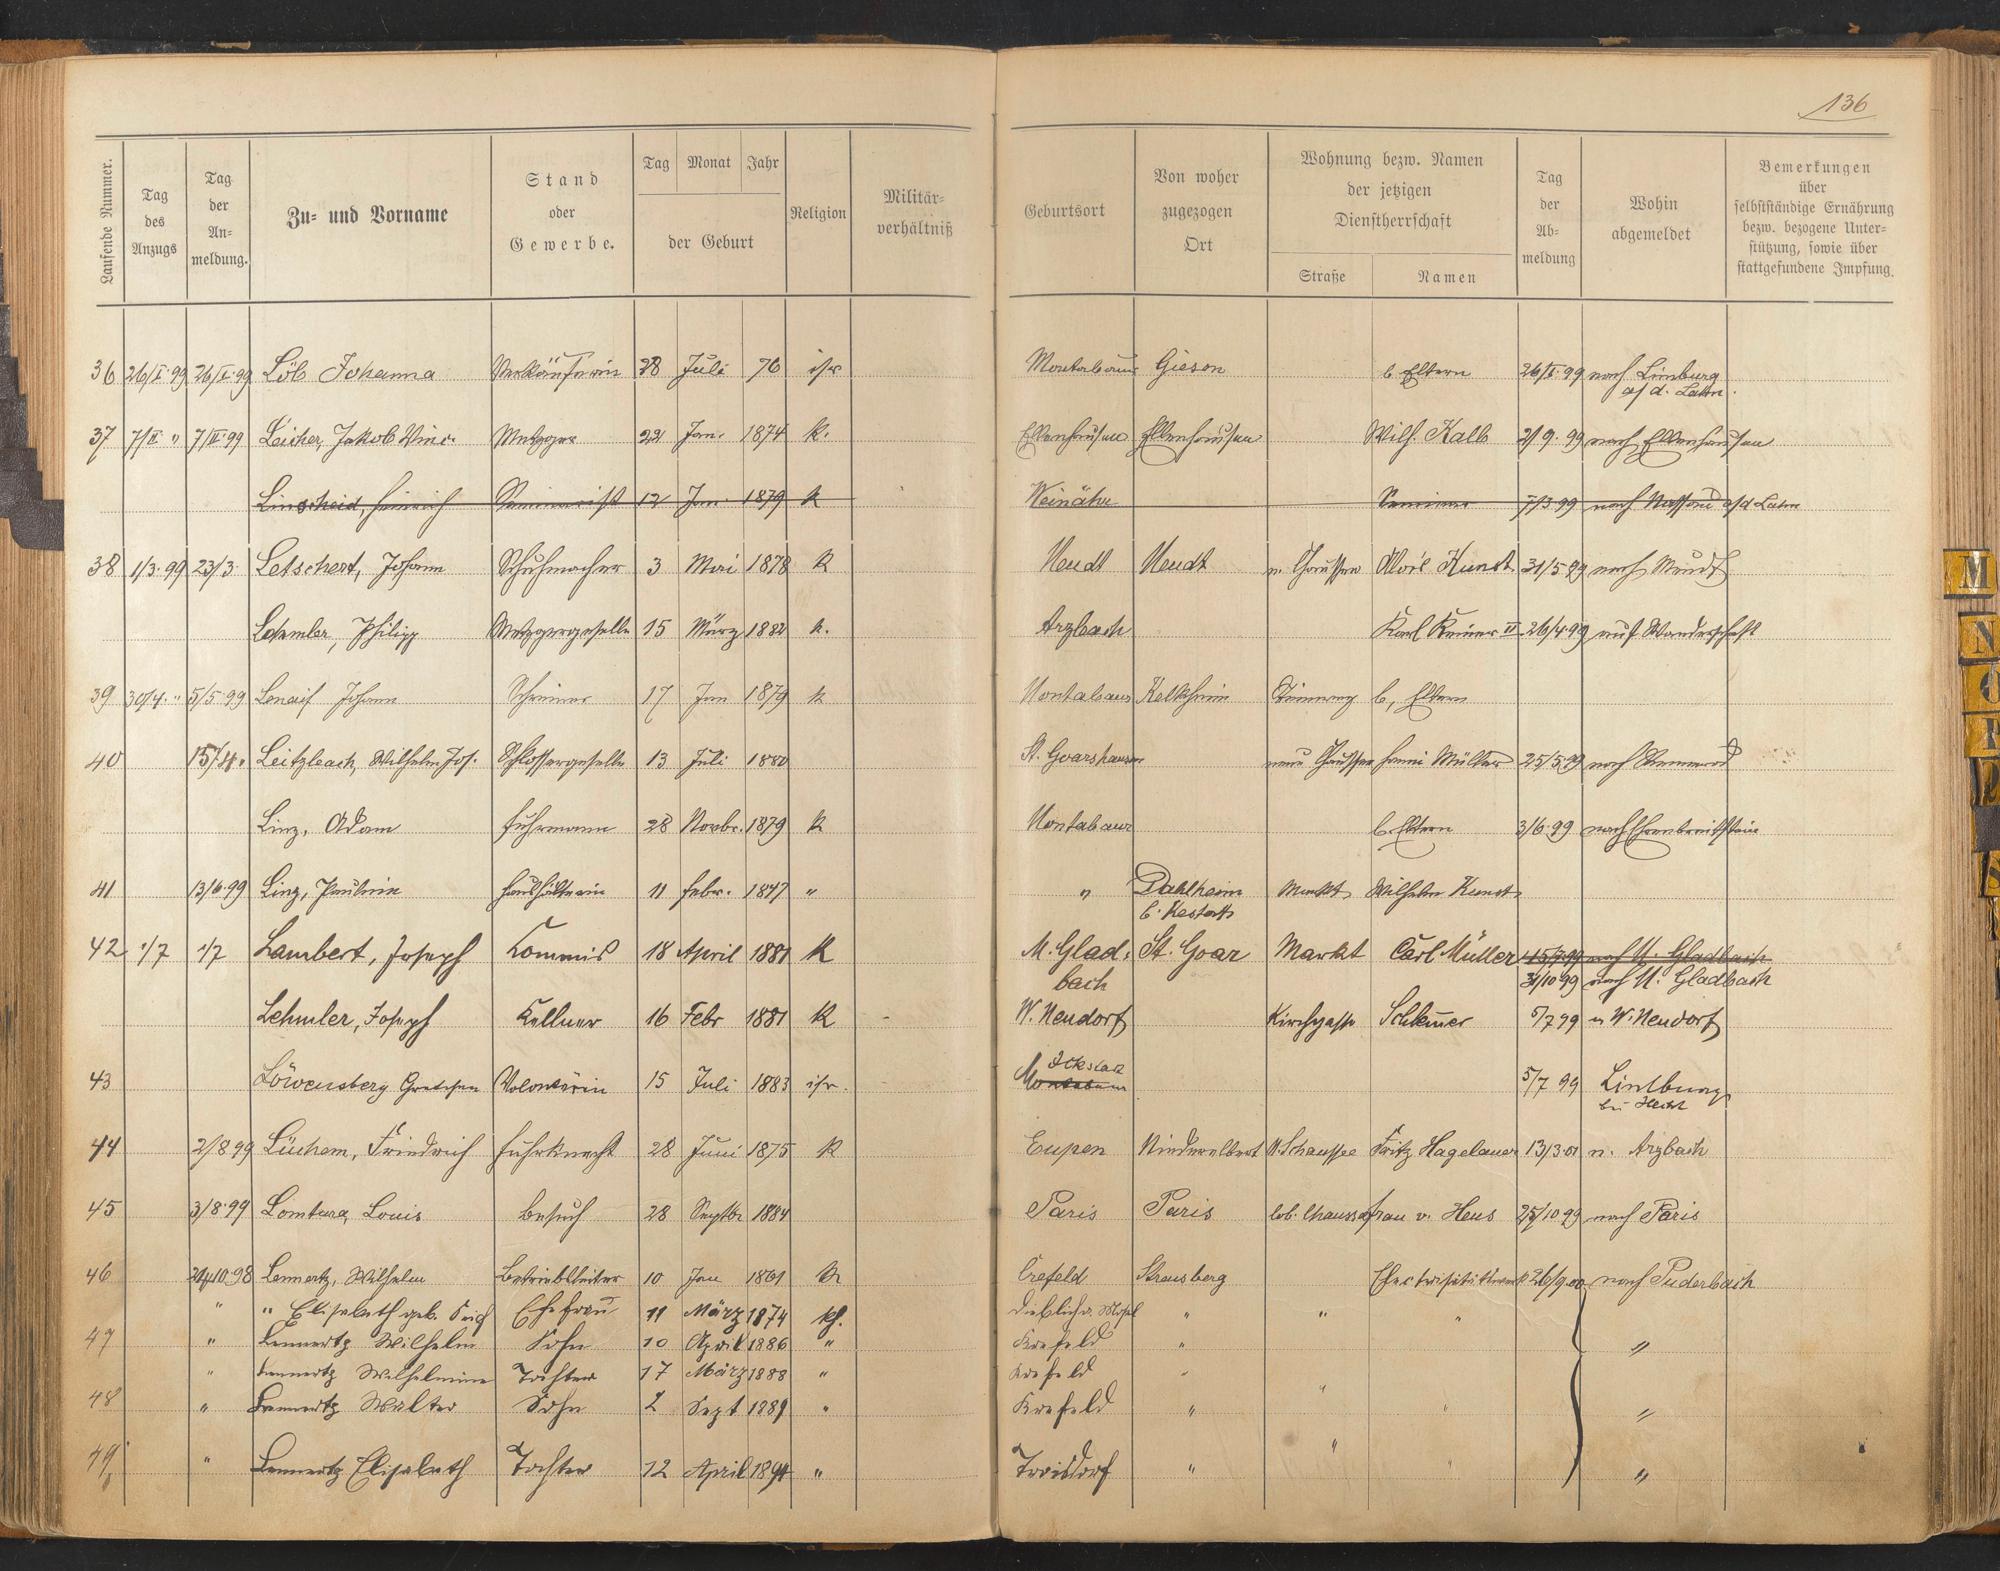 136
Laufende Nummer.
Tag des Anzugs
Tag der An- meldung.
Zu- und Vorname
Stand oder Gewerbe.
Tag Monat Jahr
der Geburt
Religion
Militär- verhältniß
Geburtsort
Von woher zugezogen Ort
Wohnung bezw. Namen der jetzigen Dienstherrschaft
Straße Namen
Tag der Ab- meldung
Wohin abgemeldet
Bemerkungen über selbstständige Ernährung bezw. bezogene Unter- stützung, sowie über stattgefundene Impfung.
36 26/I. 99 26/I. 99 Löb Johanna Verkäuferin 28 Juli 76 isr Montabaur Giesen b. Eltern 26/I. 99 nach Limburg
a/d. Lahn.
37 7/II " 7/II 99 Leicher, Jakob Vinc. Metzger 22 Jan. 1874 k. Ellenhausen Ellenhausen Wilh. Kalb 2/9. 99 nach Ellenhausen
Linscheid, Heinrich Seminarist 12 Jan. 1879 k Weinähr Seminar 7/3 99 nach Nassau a/d Lahn
38 1/3. 99 23/3. Letschert, Johann Schuhmacher 3 Mai 1878 k Meudt Meudt n. Chaussee Alois Kunst 31/5 99 nach Meudt
Lehmler, Philipp Metzgergeselle 15 März 1882 k. Arzbach Karl Kremer III 26/4. 99 auf Wanderschaft
39 30/4. " 5/5 99 Johann Schreiner 17 Jan 1879 k Montabaur Kelkheim b, Eltern
40 15/4. Leitzbach, Wilhelm Jos. Schlossergeselle 13 Juli 1880 St. Goarshausen neue Chaussee Müller 25/5 99 nach
Linz, Adam Fuhrmann 28 Novbr. 1879 k Montabaur b. Eltern 3/6. 99 nach Ehrenbreitstein
41 13/6 99 Linz, Paulnie Haushälterin 11 Febr. 1847 " " Dahlheim Markt Wilhelm Kunst
b. Kestert
42 1/7 1/7 Lambert, Joseph Kommis 18 April 1881 K M. Glad- St. Goar Markt Carl Müller 15/9 99 nach M. Gladbach
bach 31/10 99 nach M. Gladbach
Lehmler, Joseph Kellner 16 Febr 1881 K W. Neudorf Kirchgasse 5/7 99 n W. Neudorf
Ickstadt
43 Löwensberg Gretchen Volontärin 15 Juli 1883 isr. Montabaur 5/7 99 Limburg
44 2/8 99 Lüchem, Friedrich Fuhrknecht 28 Juni 1875 K Eupen Niederelbert N. Schaussee Fritz Hagelauer 13/3. 01 n. Arzbach
45 3/8. 99 Louis Besuch 28 Septbr 1884 Paris Paris Frau v. Heus 25/10 99 nach Paris
46 24/10 98 Lennertz, Wilhelm Betriebsleiter 10 Jan 1861 k Crefeld Strausberg 26/9. 00 nach Puderbach
" " Elisabeth geb. Ehefrau 11 März 1874 kh. Dieblich a. Mosel " " "
47 " Lennertz Wilhelm Sohn 10 April 1886 " Krefeld " "
" Lennertz Wilhelmine Tochter 17 März 1888 " Krefeld "
48 " Lennertz Walter Sohn 2 Sept 1889 " Krefeld " " " "
49 " Lennertz Elisabeth Tochter 12 April 1894 " Troisdorf " " " "
M
N
O